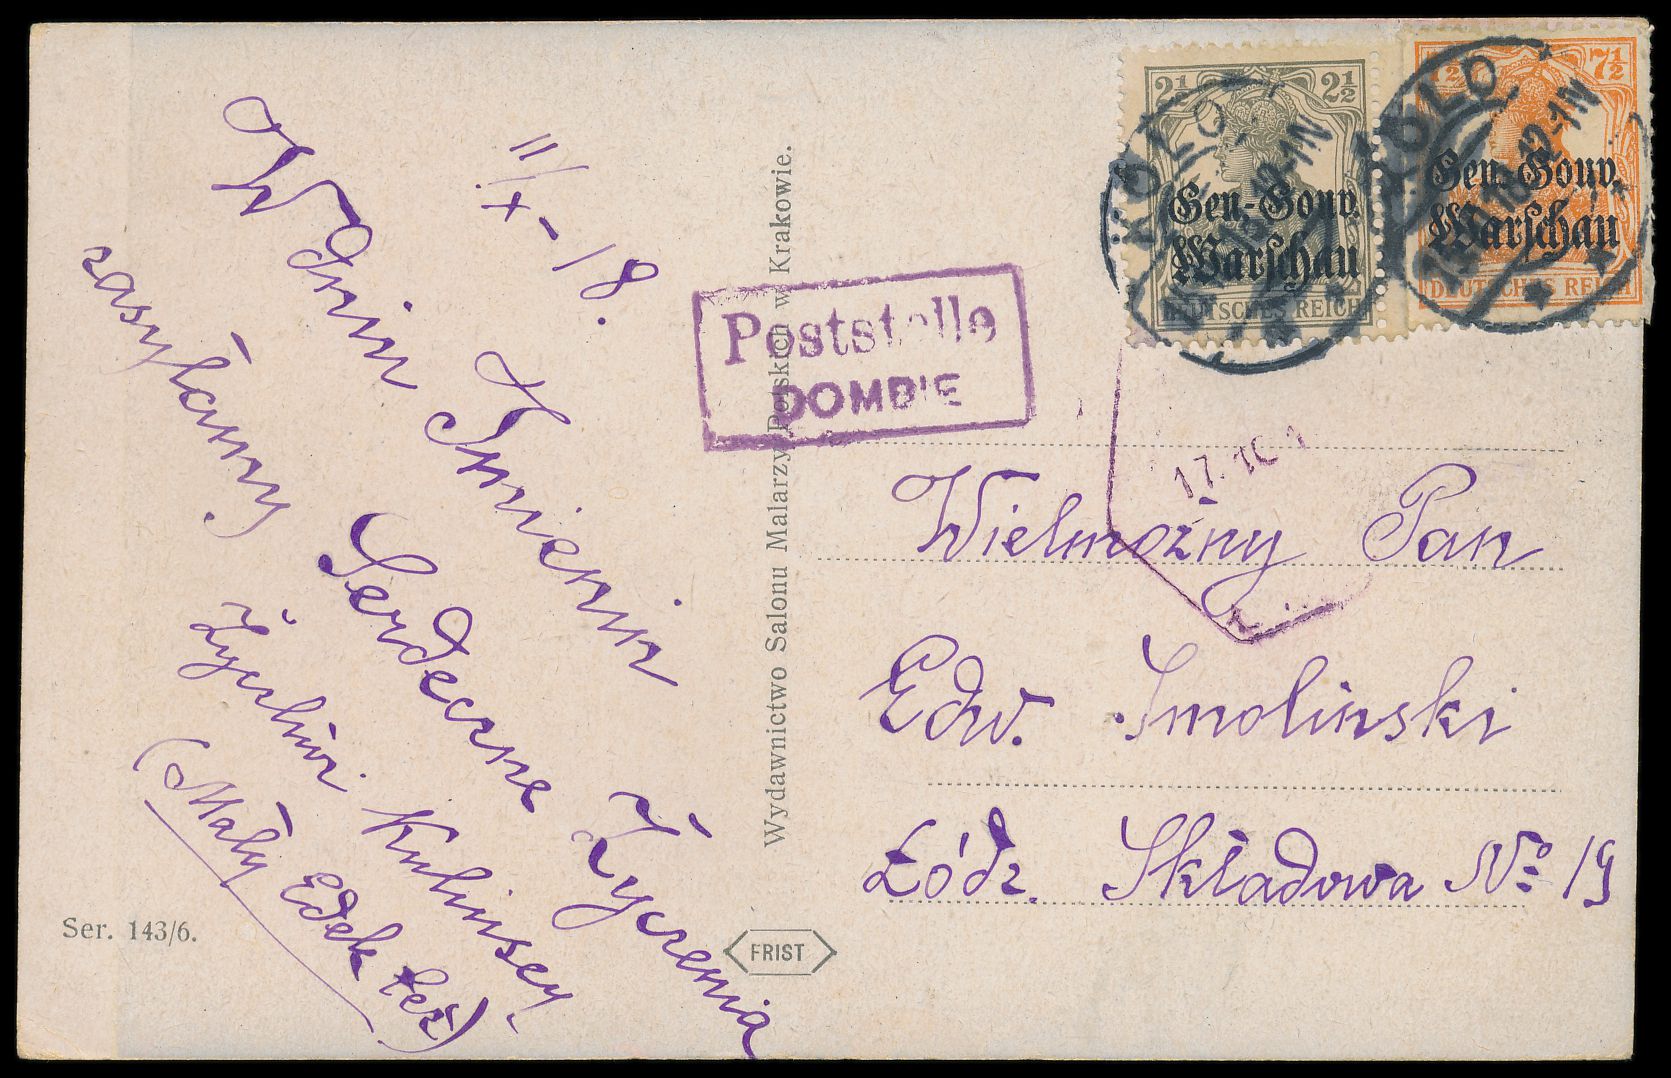 11/X-18.
W dniu Imienin
zasyłamy Serdeczne Życzenia
Życzliwi Kulińscy.
(Mały Edek też)
Ser. 143/6.
Wydawnictwo Salonu Malarzy Polskich w Krakowie.
FRIST
Poststelle
DOMBIE
2½ 2½
Gen.-Gouv.
Warschau
DEUTSCHES REICH
7½ 7½
Gen.-Gouv.
Warschau
DEUTSCHES REICH
KOLO
12-1N
KOLO
12-1N
17. 10. 1
Wielmożny Pan
Edw. Smolinski
Łódź. Składowa No 19